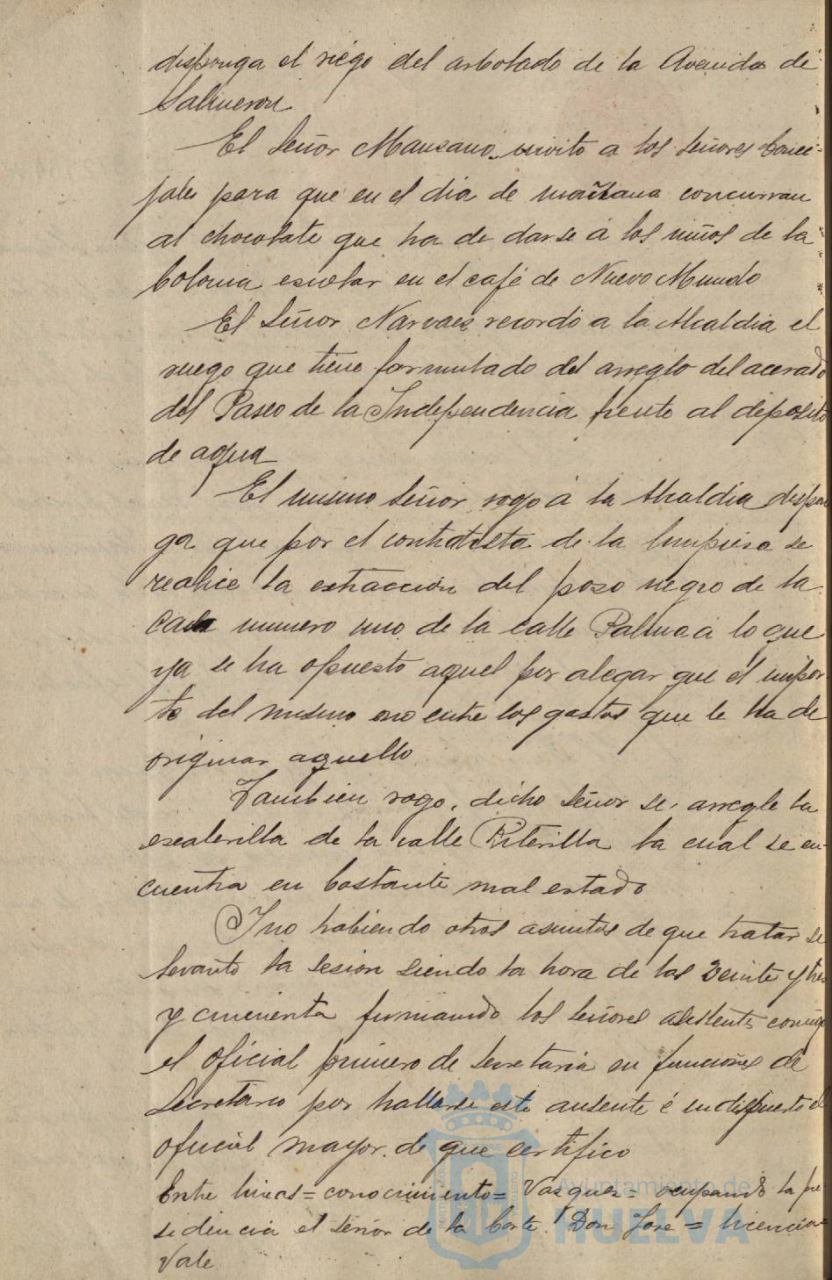 disponga el riego del arbolado de la Avenida de
Salmeron
El Señor Manzano, invito a los señores Conce-
jales para que en el dia de mañana concurran
al chocolate que ha de darse á los niños de la
Colonia escolar en el café de Nuevo Mundo
El Señor Narvaez recordó a la Alcaldia el
ruego que tiene formulado del arreglo del acerado
del Paseo de la Independencia frente al deposito
de agua
El mismo Señor rogo á la Alcaldia dispon
ga que por el contratista de la limpieza se
realice la extracción del pozo negro de la
casa numero uno de la calle Palma á lo que
ya se ha opuesto aquel por alegar que el impor-
te del mismo no cubre los gastos que le ha de
originar aquello
Tambien rogo, dicho Señor se arregle la
escalerilla de la calle la cual se en-
cuentra en bastante mal estado
Y no habiendo otros asuntos de que tratar se
levantó la sesion siendo la hora de las veinte y tres
y cincuenta firmando los señores asistentes conmigo
el oficial primero de Secretaria en funciones de
Secretario por hallarse este ausente é indispuesto el
oficial mayor, de que certifico
Entre lineas = conocimiento = Vazquez = ocupando la pre-
sidencia el señor de la Corte Don Jose = licencia =
Vale
Ayuntamiento de
HUELVA